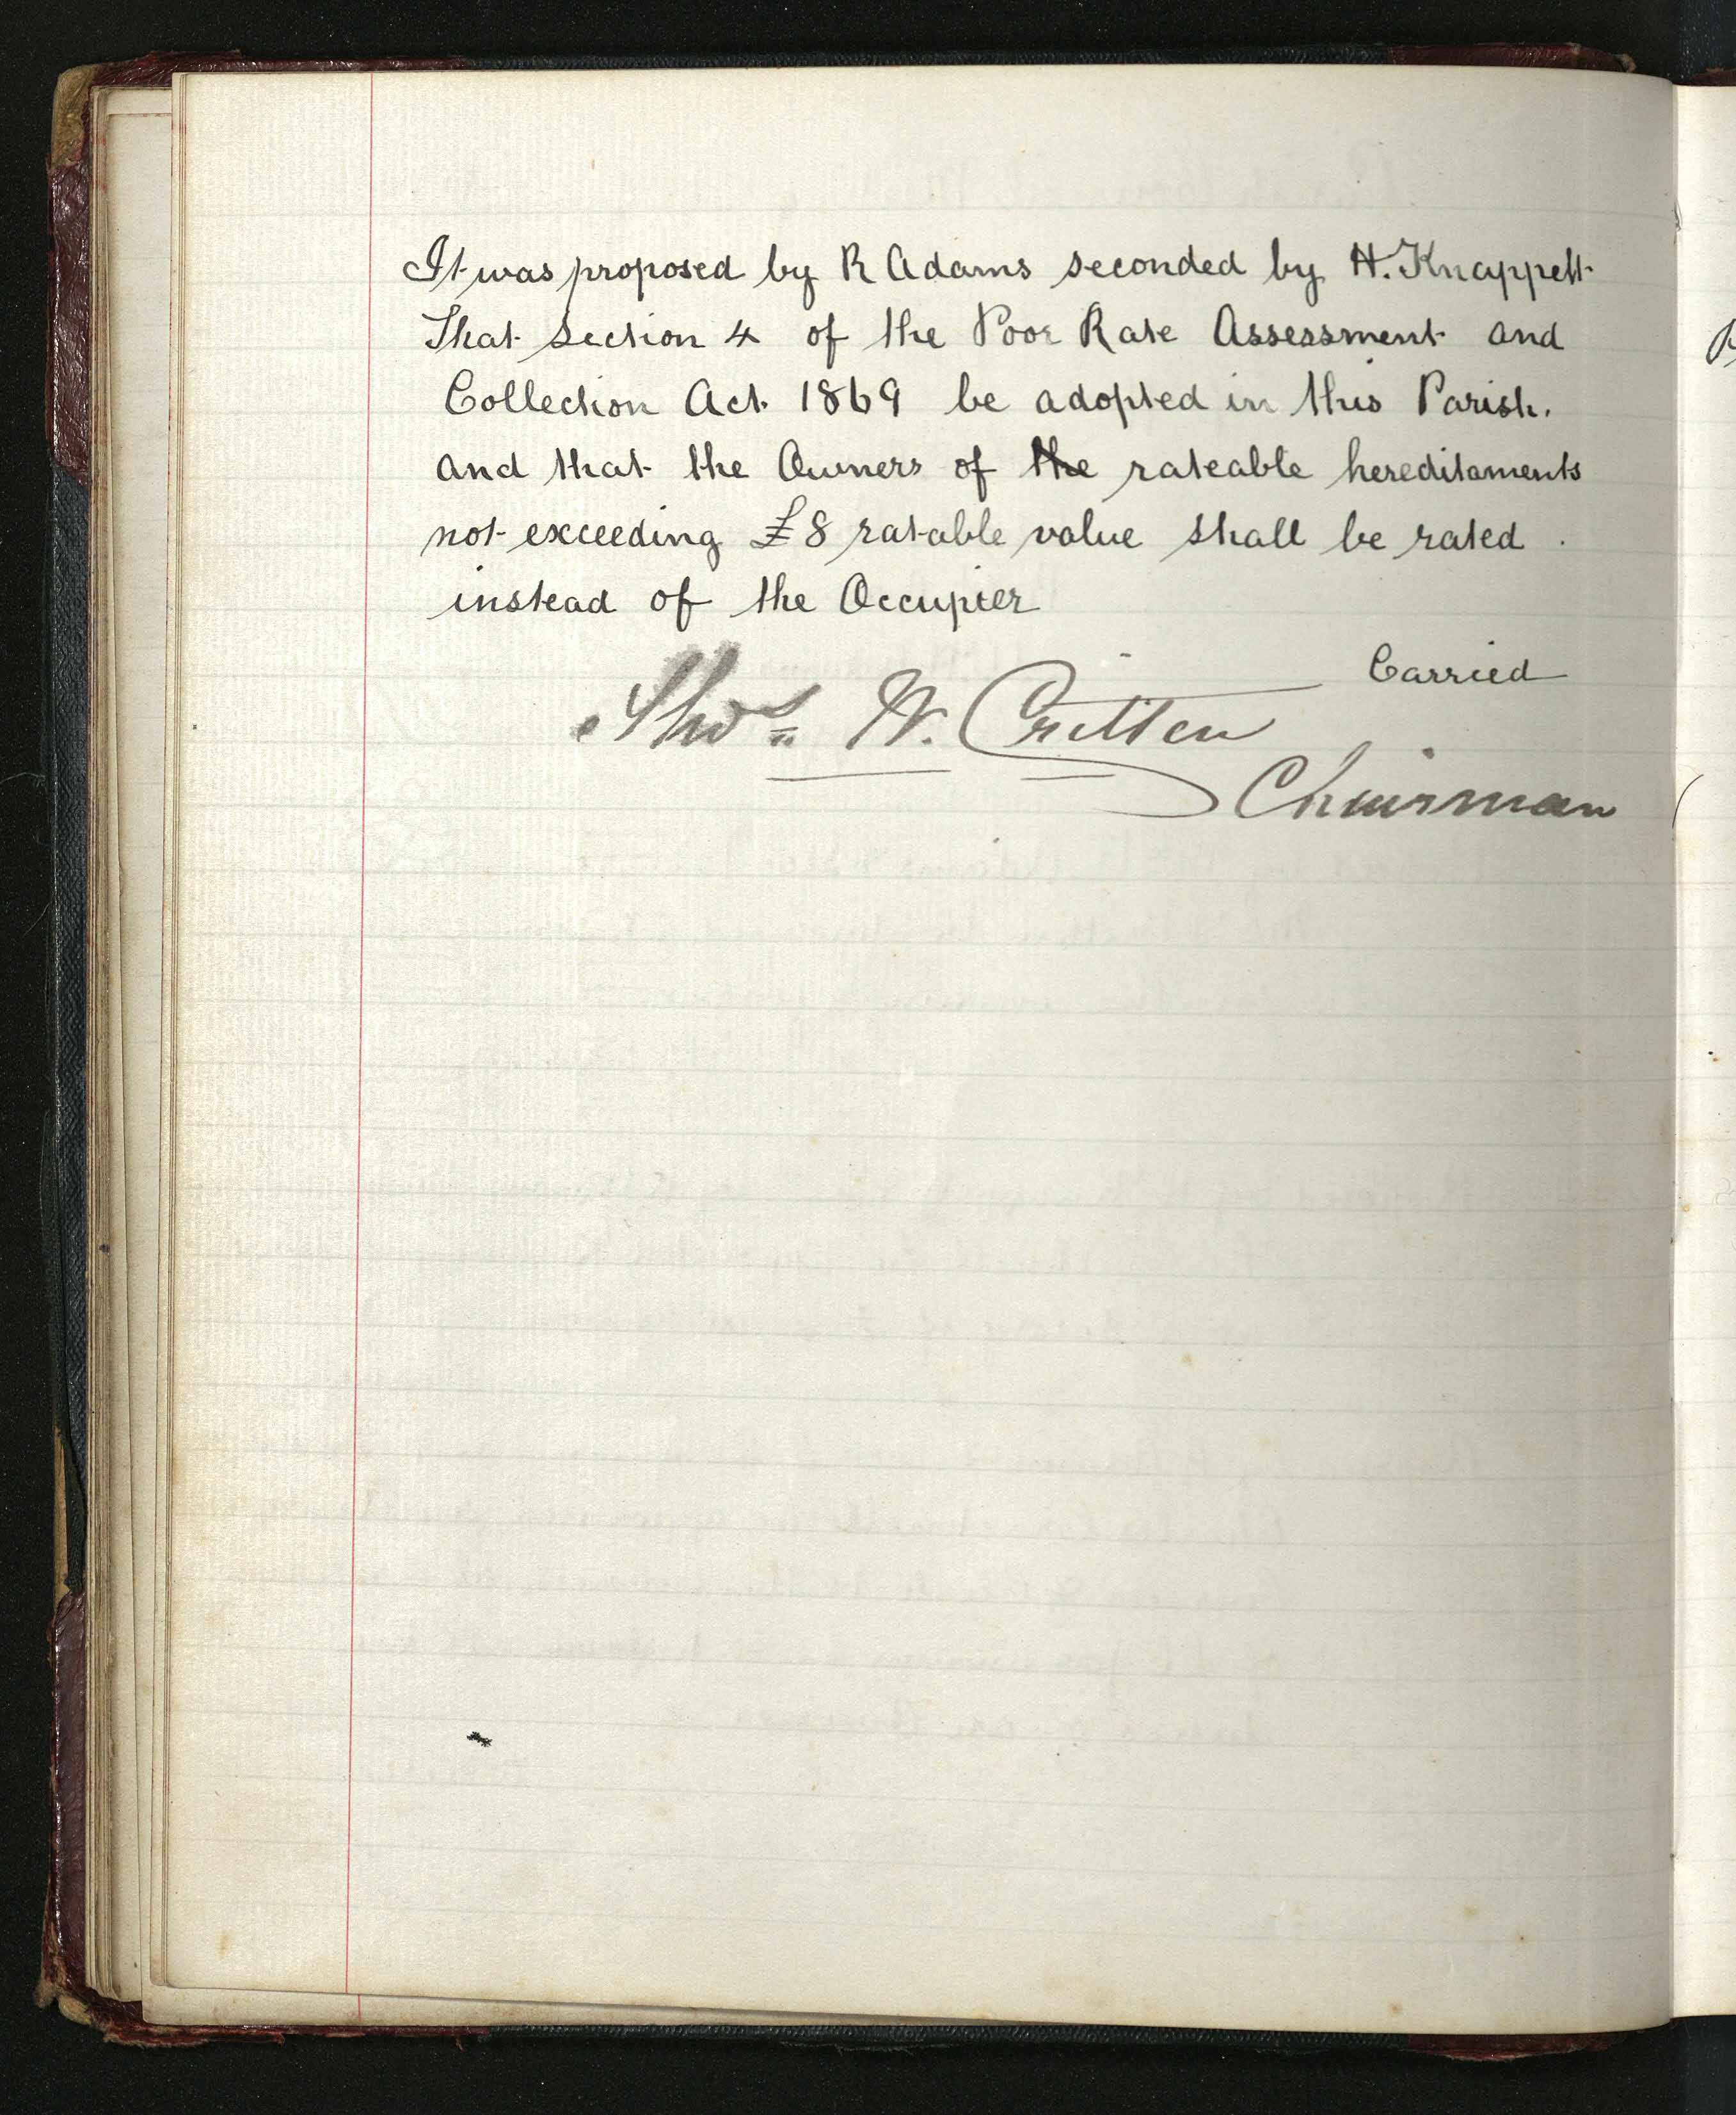 It was proposed by R Adams seconded by H. Knappett
That Section 4 of the Poor Rate Assessment and
Collection Act 1869 be adopted in this Parish.
and that the Owners of the rateable hereditaments
not exceeding £8 ratable value shall be rated.
instead of the Occupier
Carried
Thos. W. Critten
Chairman